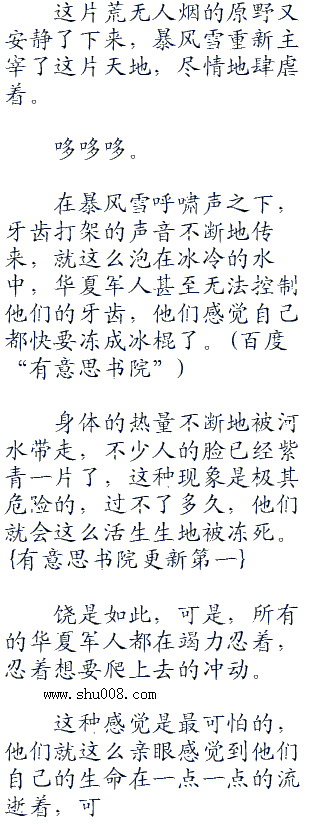 这片荒无人烟的原野又
安静了下来，暴风雪重新主
宰了这片天地，尽情地肆虐
着。
哆哆哆。
在暴风雪呼啸声之下，
牙齿打架的声音不断地传
来，就这么泡在冰冷的水
中，华夏军人甚至无法控制
他们的牙齿，他们感觉自己
都快要冻成冰棍了。(百度
“有意思书院”)
身体的热量不断地被河
水带走，不少人的脸已经紫
青一片了，这种现象是极其
危险的，过不了多久，他们
就会这么活生生地被冻死。
{有意思书院更新第一}
饶是如此，可是，所有
的华夏军人都在竭力忍着，
忍着想要爬上去的冲动。
www.shu008.com
这种感觉是最可怕的，
他们就这么亲眼感觉到他们
自己的生命在一点一点的流
逝着，可